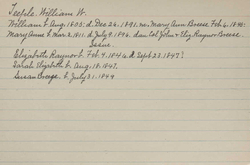 Teeple, William W.
William b. Aug. 1805; d. Dec 26. 1891. m. Mary Ann Breese Feb 4. 1841.
Mary Anne b. Mar 3, 1811. d. July 9. 1896. dau Col John & Eliz Raynor Breese.
Issue
Elizabeth Raynor b. Feb. 4. 1846. d. Sept 23. 1847?
Sarah Elizabeth b. Aug. 18. 1847.
Susan b. July 31. 1849